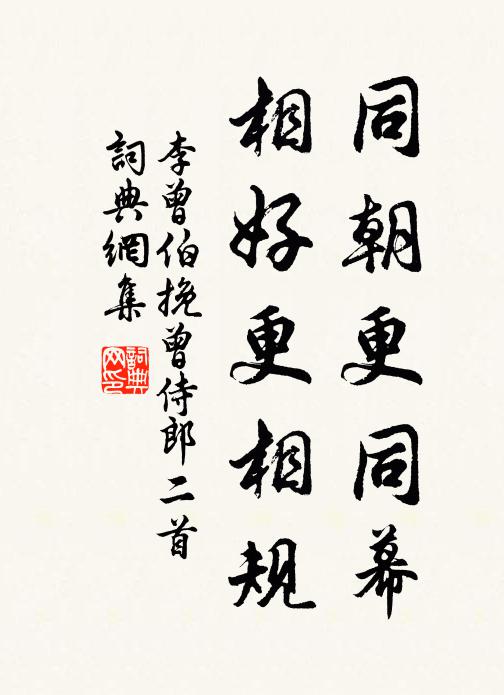 同朝更同幕
相好更相規
李曾伯挽曾侍郎二首
詞典網集
詞典网印